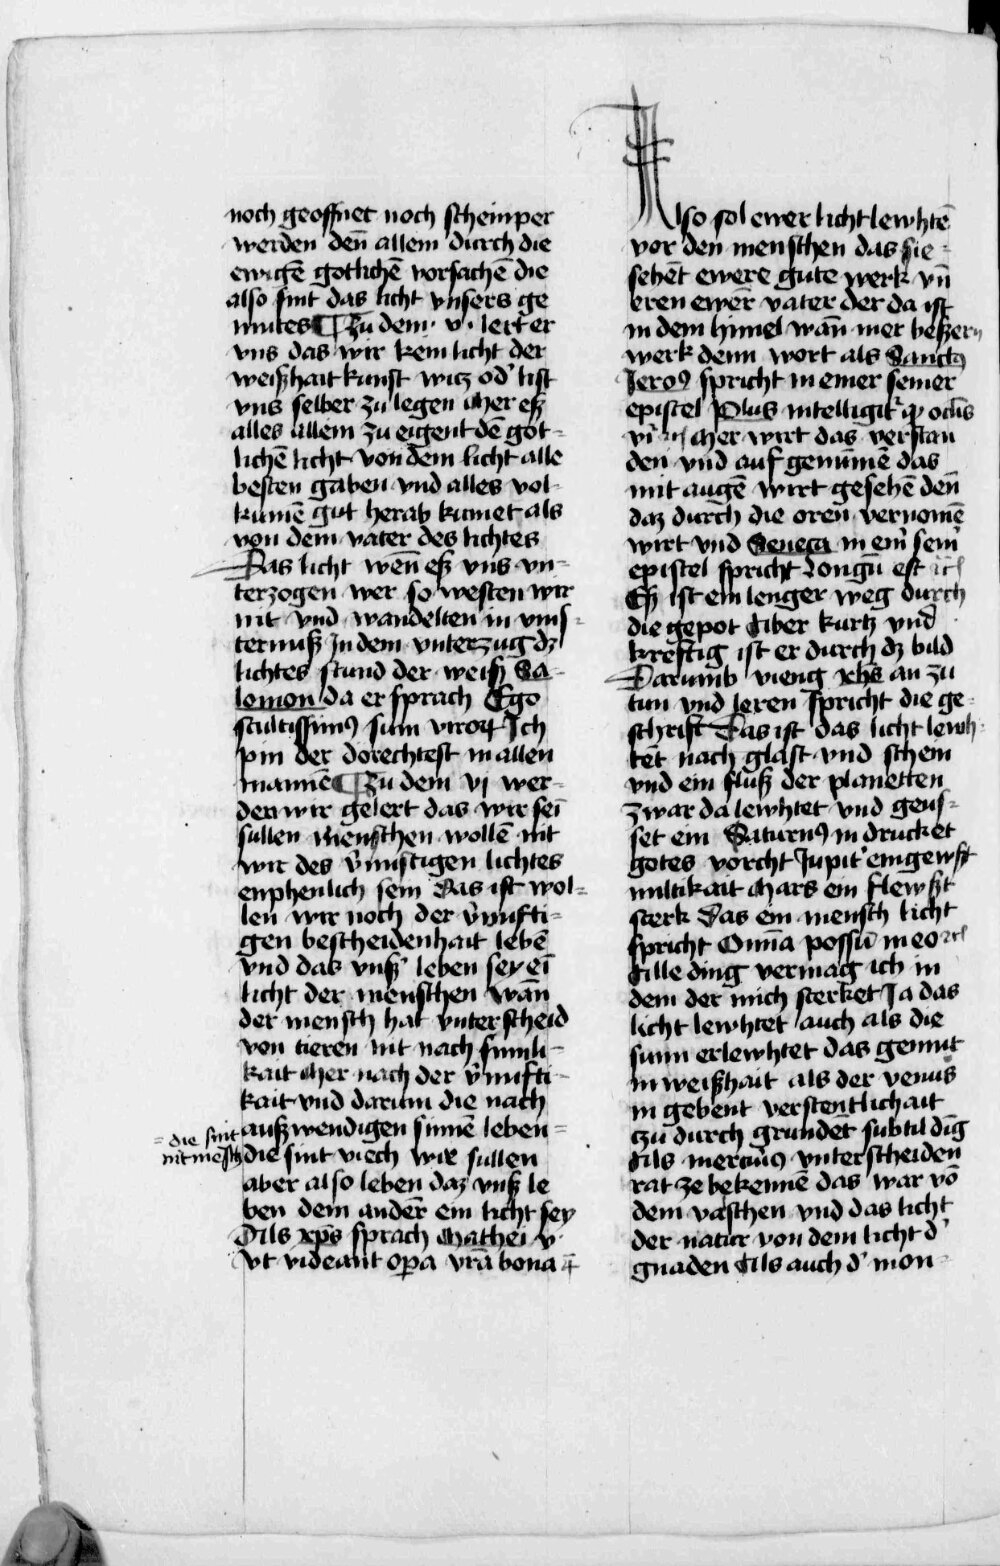 noch geoffnet noch scheinper
werden den̄ allein durch die
ewigē gotlichē vorsachē die
also sint das licht vnsers ge
mutes ¶ Zu dem · v · lert er
vns das wir kein licht der
weißhait kunst witz od' list
vns selber zu legen Mer eß
alles allein zu eigent dē got-
lichē licht von dem licht alle
besten gaben vnd alles vol-
kumē gut herab kumet als
von dem vater des lichtes
Das licht wen̄ eß vns vn-
terzogen wer so westen wir
nit vnd wandelten in vins-
ternuß In dem vnterzug dz
lichtes stund der weiß Sa-
lemon da er sprach Ego
stultissimꝰ sum viroꝝ Ich
pin der dorechtest in allen
mannē ¶ Zu dem vj wer-
den wir gelert das wir sei
sullen Menschen wollē nit
wir des v̄nunftigen lichtes
enphenlich sein Das ist wol-
len wir noch der v̄nufti-
gen bescheidenhait lebē
vnd das vnß' leben sey ei
licht der menschen wān
der mensch hat vnterscheid
von tieren nit nach sinnli-
kait Mer nach der v̄nufti-
kait vnd darum die nach
außwendigen sinnē leben-
= die sint
nit mēsch
die sint viech wir sullen
aber also leben daz vnß le
ben dem andēr ein licht sey
Als xp̄s sprach Mathei v·
vt videant op̄a vr̄a bona
Also sol ewer licht lewhtē
vor den menschen das sie-
sehēt ewere gute werk vn̄
eren ewēr vater der da ist
in dem himel wān mer beßern
werk denn wort als Sanctꝰ
Jeroꝰ spricht in einer seiner
epistel Plus intelligit' q̄ oclīs
Mer wirt das verstan
den vnd auf genūmē das
mit augē wirt gesehē den̄
daz durch die oren vernomē
wirt vnd Seneca in ein' sein'
epistel spricht Longū est
Eß ist ein lenger weg durch
die gepot Aber kurtz vnd
kreftig ist er durch dz bild
Darumb vieng xh̄s an zu
tun vnd leren spricht die ge-
schrift Das ist das licht lewh-
tēt nach glast vnd schein
vnd ein fluß der planetten
zwar da lewhtet vnd geus-
set ein Saturnꝰ in drucket
gotes vorcht Jupit' eingewst
miltikait Mars ein flewßt
sterk Das ein mensch licht
spricht Omīa possū in eo
Alle ding vermag ich in
dem der mich sterket Ja das
licht lewhtet auch als die
sunn erlewhtet das gemut
in weißhait als der venus
in gebent verstentlichait
tzu durch grundēt subtil dīg
Als mercuꝰ vnterscheiden
rat ze bekennē das war vō
dem valschen vnd das licht
der natur von dem licht d'
gnaden Als auch d' mon-